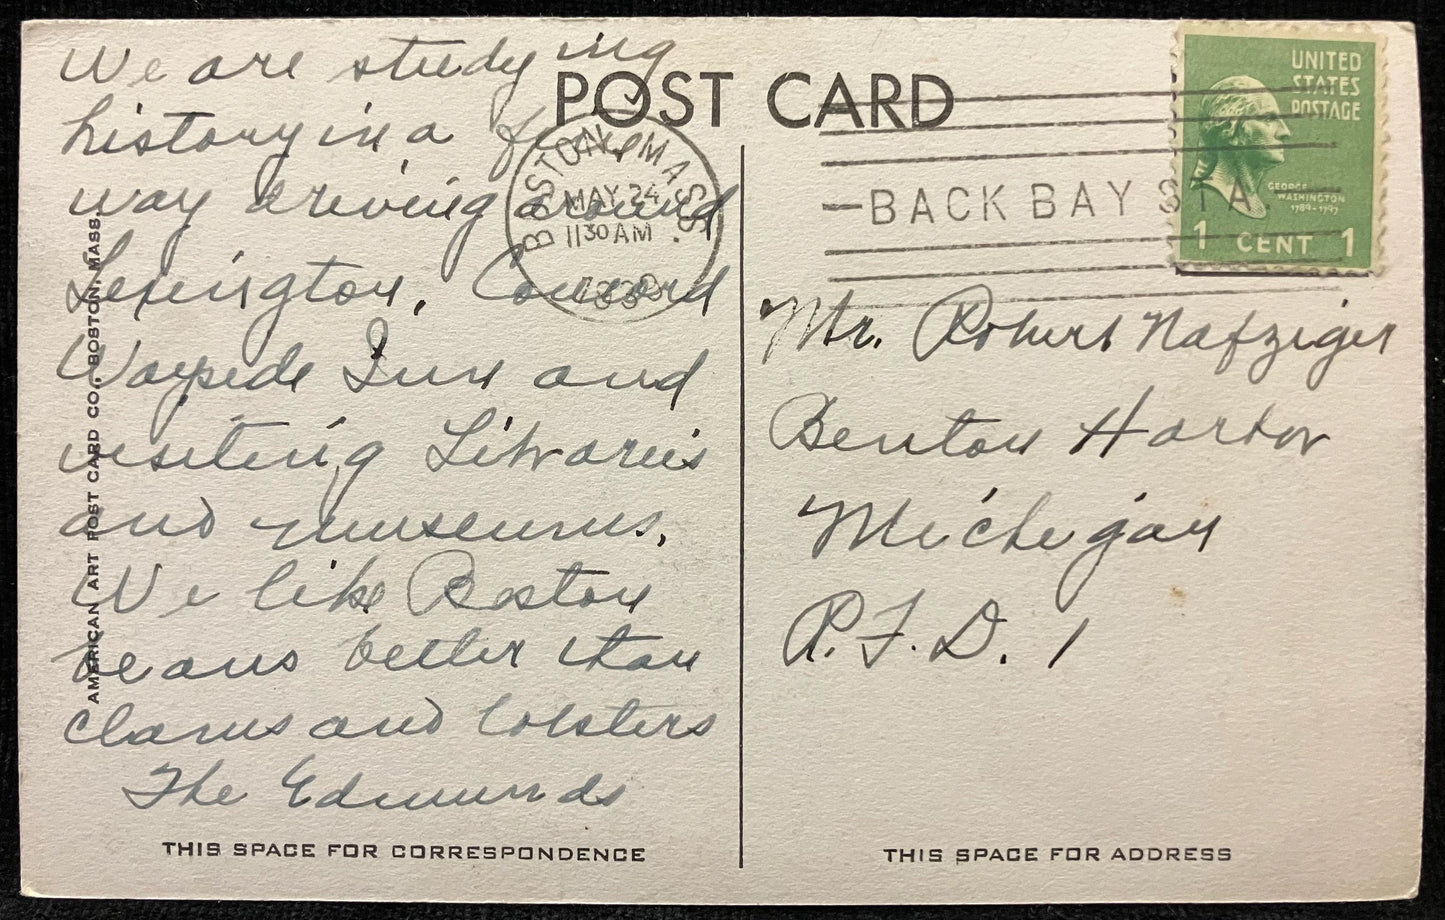 POST CARD
We are studying
history in a
way driving around
Lexington, Concord
Wayside Inn and
visiting Libraries
and museums.
We like Boston
beans better than
clams and lobsters
The Edmunds
THIS SPACE FOR CORRESPONDENCE
AMERICAN ART POST CARD CO., BOSTON, MASS.
BOSTON, MASS.
MAY 24
11 30 AM
BACK BAY STA.
UNITED
STATES
POSTAGE
GEORGE
WASHINGTON
1789-1797
1 CENT 1
Mr. Robert Nafziger
Benton Harbor
Michigan
R.F.D. 1
THIS SPACE FOR ADDRESS